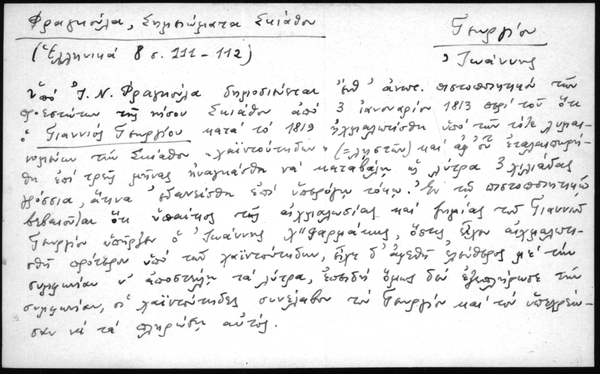 Φραγκούλα, Σημειώματα Σκιάθου
Γεωργίου
(Ἑλληνικά 8 σ. 111-112)
Ἰωάννης
Ὑπό Ἰ. Ν. Φραγκούλα δημοσιεύεται ἐν ἀντιγρ. πιστοποιητικόν τῶν
προεστώτων τῆς νήσου Σκιάθου ἀπό 3 Ἰανουαρίου 1813 περί τοῦ ὅτι
ὁ Γιαννιός Γεωργίου κατά τό 1819 ᾐχμαλωτίσθη ὑπό τῶν τότε λυμαι-
νομένων τήν Σκιάθον "χαϊντούτηδων" (=λῃστῶν) καί ἀφ' οὗ ἐταλαιπωρή-
θη ἐπί τρεῖς μῆνας ἠναγκάσθη νά καταβάλῃ λύτρα 3 χιλιάδας
γρόσσια, ἅτινα ἐδανείσθη ἐπί ὑπερόγκῳ τόκῳ. Ἐν τῷ πιστοποιητικῷ
βεβαιοῦται ὅτι ὑπαίτιος τῆς αἰχμαλωσίας καί ζημίας τοῦ Γιαννιοῦ
Γεωργίου ὑπῆρξεν ὁ Ἰωάννης Χ"Φαρμάκης, ὅστις εἶχεν αἰχμαλωτι-
σθῆ πρότερον ὑπό τῶν χαϊντούτηδων, εἶχε δ' ἀφεθῆ ἐλεύθερος μέ τήν
συμφωνίαν ν' ἀποστείλῃ τά λύτρα, ἐπειδή ὅμως δέν ἐξεπλήρωσε τήν
συμφωνίαν, οἱ χαϊντούτηδες συνέλαβον τόν Γεωργίου καί τόν ὑπεχρέω-
σαν νά τά πληρώσῃ αὐτός.